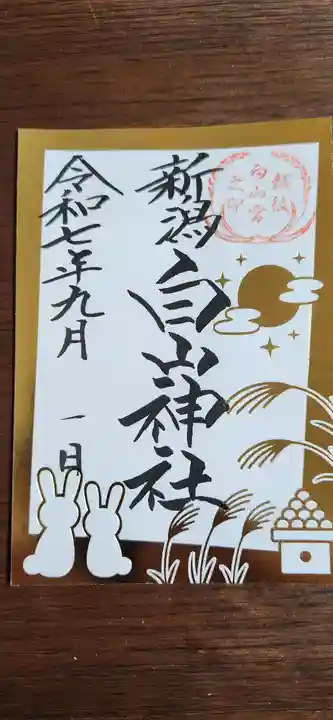 越後
白山宮
之印
新潟白山神社
令和七年九月 一日